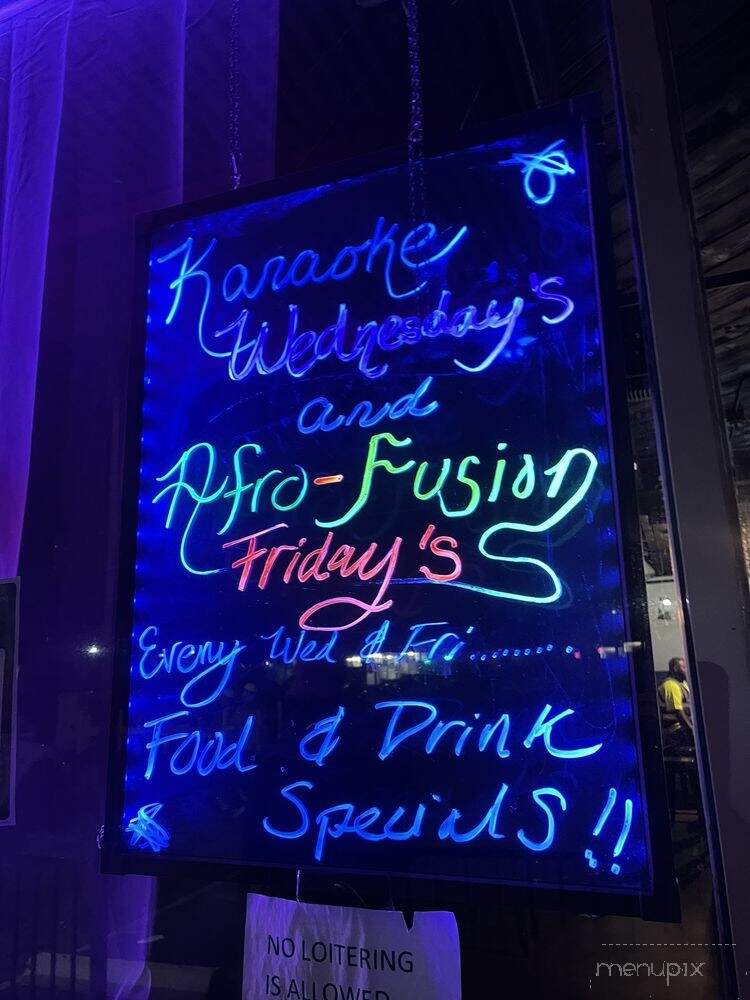 Karaoke
Wednesday's
and
Afro-Fusion
Friday's
Every Wed & Fri........
Food & Drink
Specials!!
NO LOITERING
IS ALLOWED
menupix